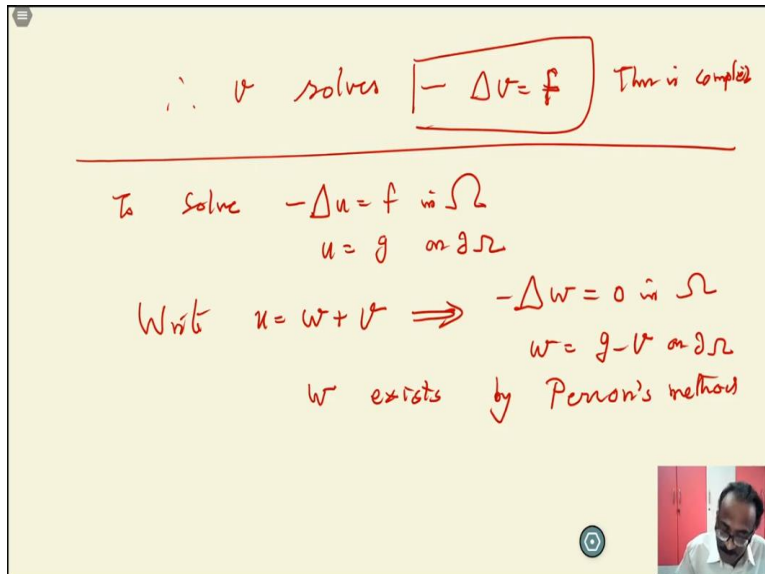 ∴ v solves - Δv = f Thm is complete
To solve -Δu = f in Ω
u = g on ∂Ω
Write u = w + v ⟹ -Δw = 0 in Ω
w = g - v on ∂Ω
w exists by Perron's method